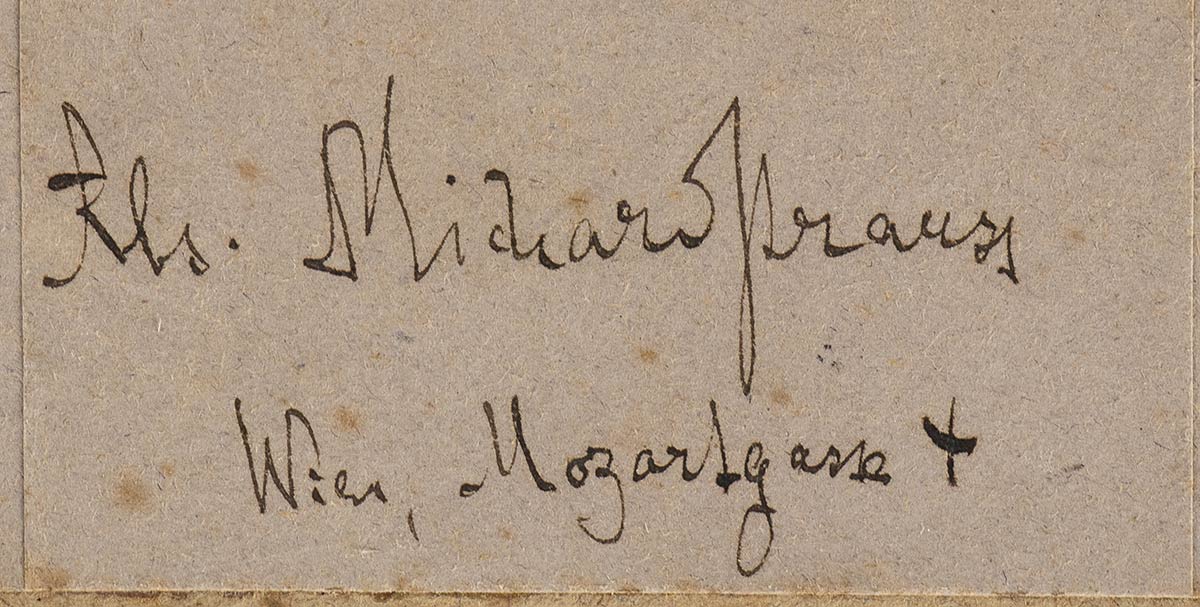 Abs. Richard Strauss
Wien, Mozartgasse 4